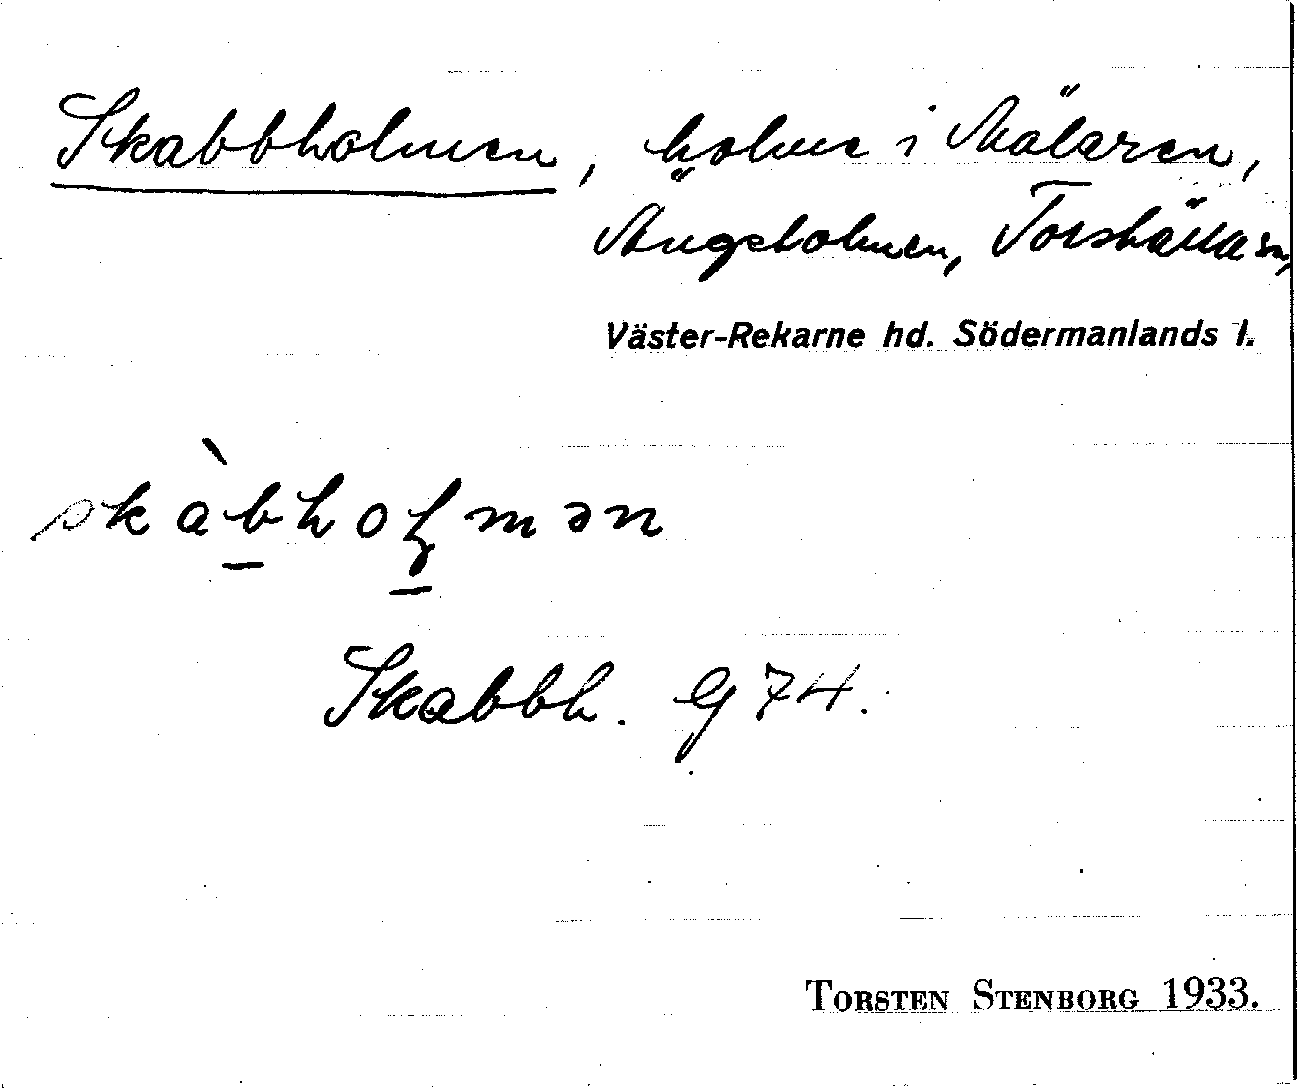 Skabbholmen, holme i Mälaren,
Ängsholmen, Torshälla sn,
Väster-Rekarne hd. Södermanlands l.
skàbhoɭmən
Skabbh. G 74.
TORSTEN STENBORG 1933.